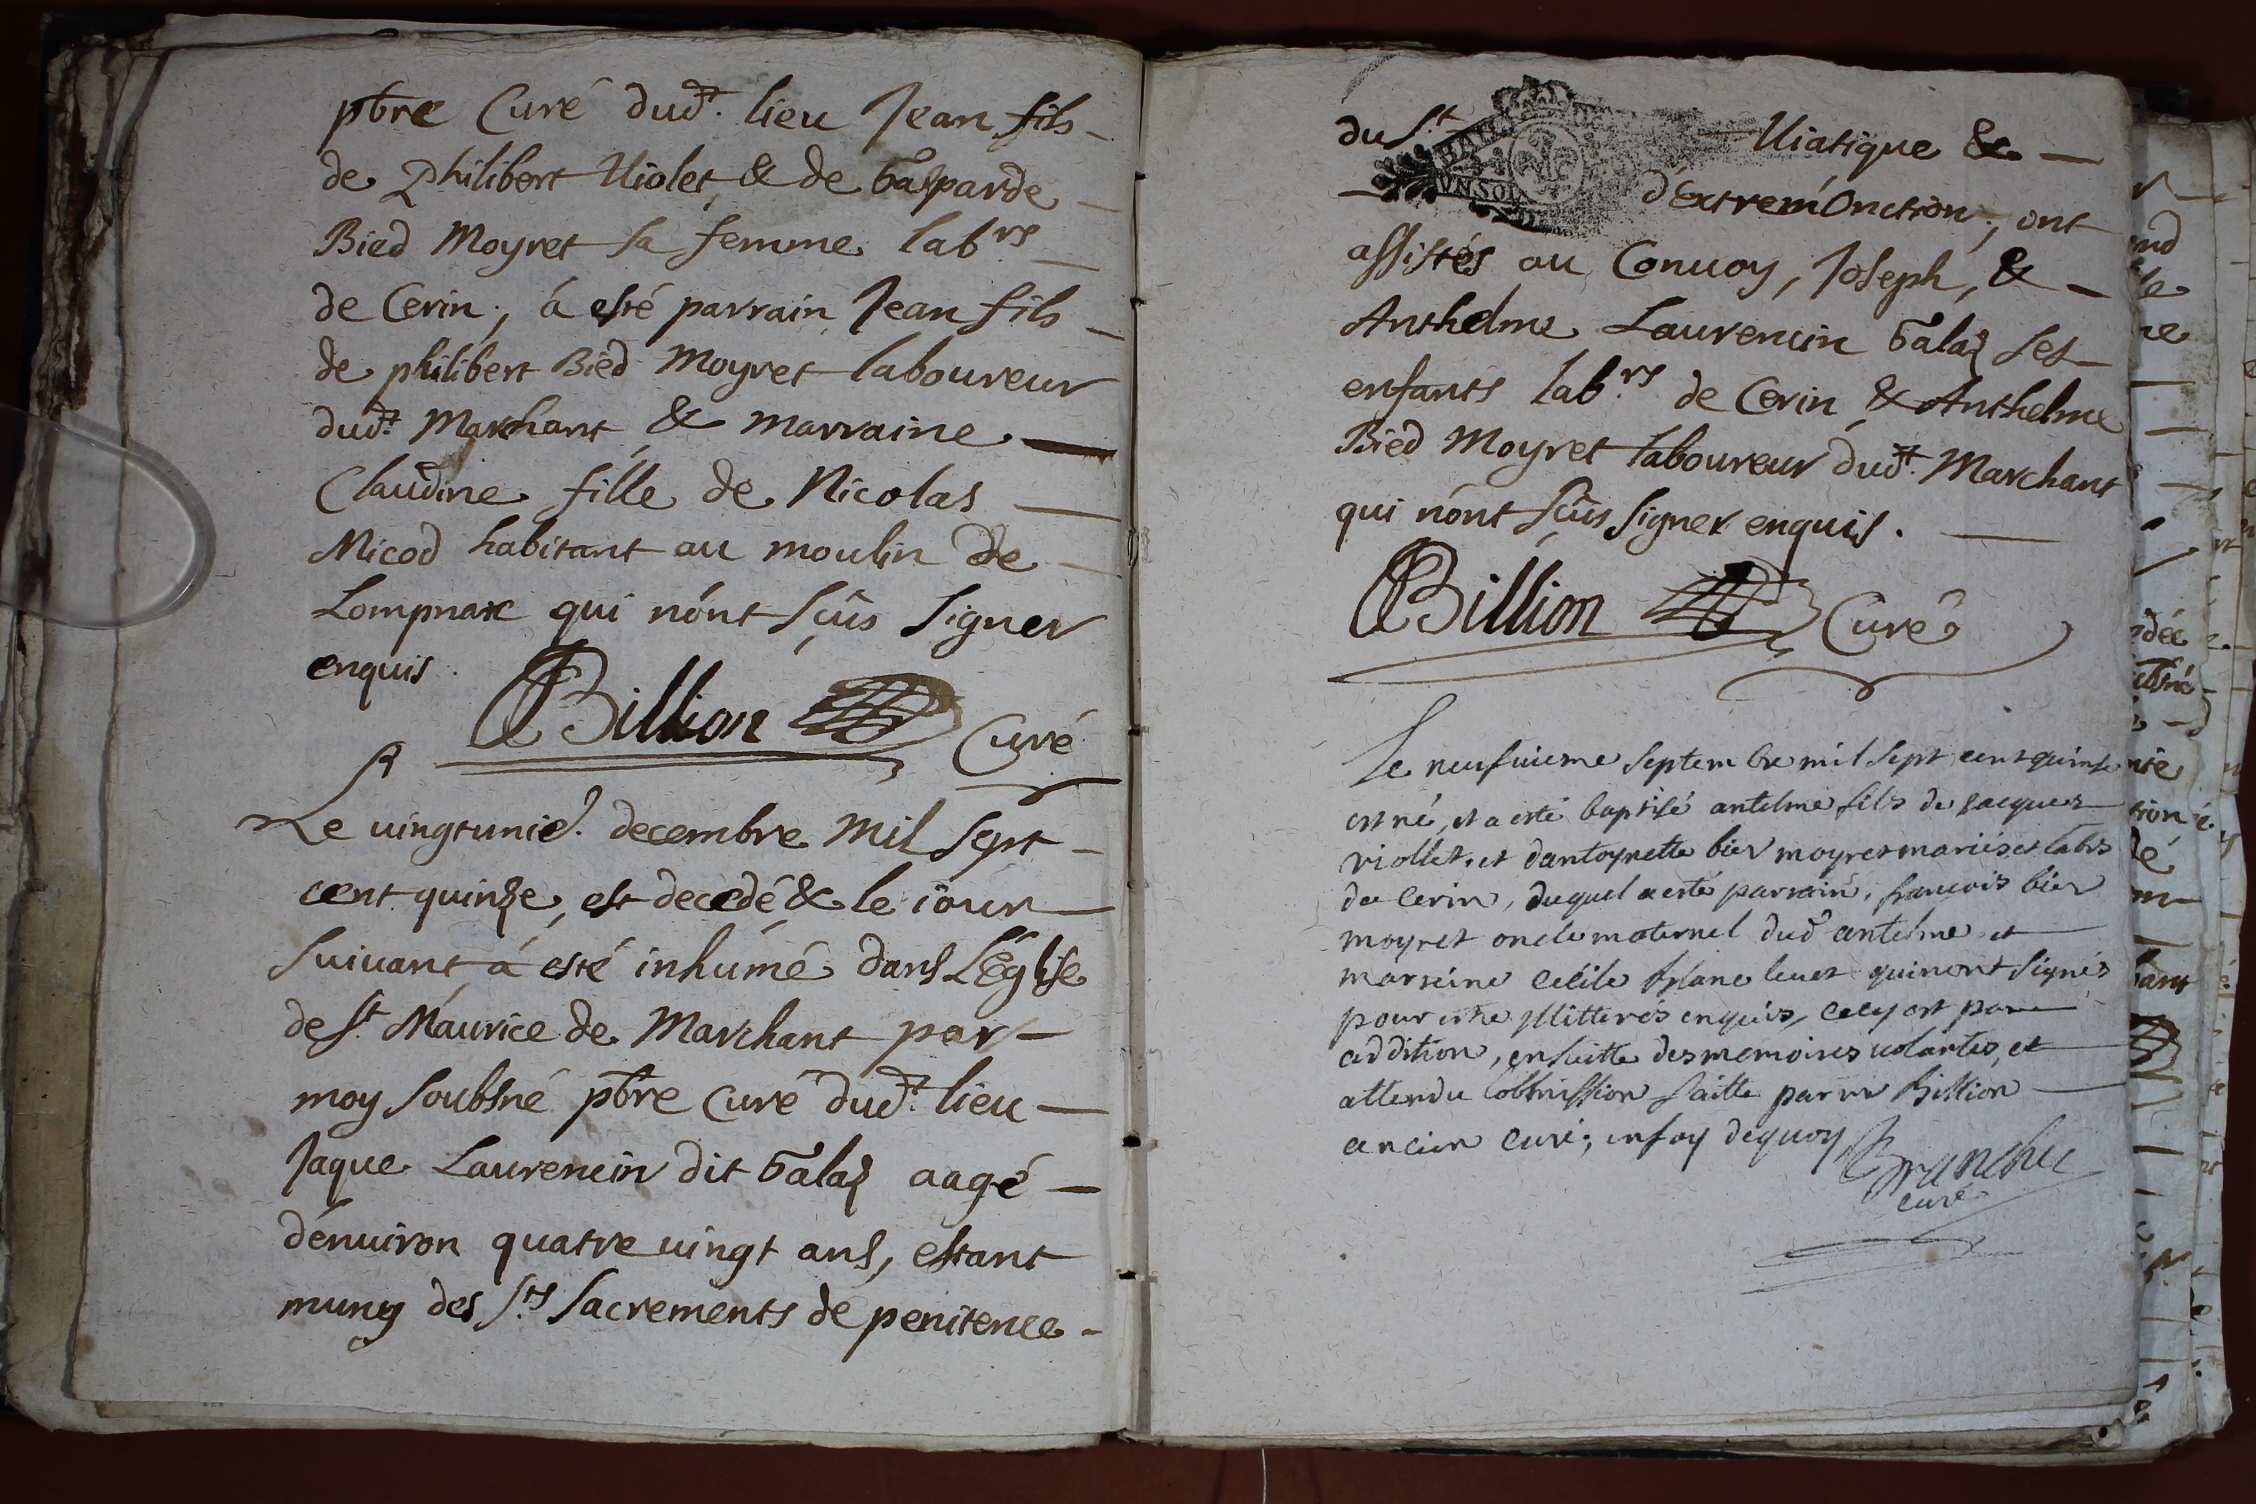 pbre Curé dud.t lieu Jean fils
de Philibert Uiolet & de Gasparde
Bied Moyret sa femme lab.rs
de Cerin, à esté parrain Jean fils
de philibert Bied Moyret laboureur
dud.t Marchant & marraine
Claudine fille de Nicolas
Micod habitant au moulin de
Lompnax qui n'ont sçûs signer
enquis.
Billion Curé
Le uingtunie. decembre Mil Sept
cent quinze, est decedé & le iour
suiuant à esté inhumé dans L'Eglise
de S.t Maurice de Marchant par
moy soubsné pbre Curé dud.t lieu
Jaque Laurencin dit Galaz aagé
d'enuiron quatre uingt ans, estant
muny des S.ts Sacrements de penitence
du S.t Uiatique &
UN SOL
d'Extrem'Onction, ont
assistés au Conuoy, Joseph, &
Anthelme Laurencin Galaz ses
enfants lab.rs de Cerin & Anthelme
Bied Moyret laboureur dud.t Marchant
qui n'ont sçûs signer enquis.
Billion Curé
Le neufuieme septembre mil sept cent quinse
est né, et a esté baptisé antelme fils de jacques
viollet, et d'antoynette bier moyret mariés et labrs
de Cerin, duquel a esté parrain, francois bier
moyret oncle maternel dud antelme et
marreine Cecile blanc leuet qui n'ont signés
pour estre jllitterés enquis, Cecy est par
addition, en suitte des memoires uolantes, et
attendu l'obmission faitte par mr Billion
ancien curé; en foy dequoy
Branche
curé